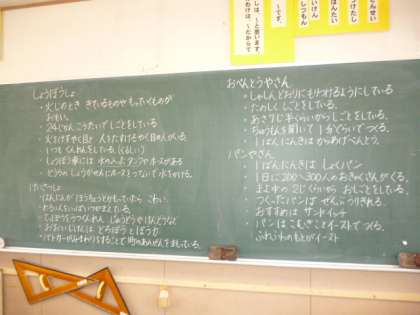 しは、〜と思います。
わけは、〜だからで
〜です。
さんせい
つけたし
はんたい
しつもん
しょうぼうしょ
・火じのとき きているものや もっていくものが
おもい。
・24じかん こうたいで しごとをしている。
・火をけすやく目と 人をたすけるやく目の人がいる。
・いつも くんれんをしている。(くるしい)
・しょうぼう車には 水の入った タンクや ホースがある
・どうろの しょうかせんに ホースをつないで 水をかける。
けいさつしょ
・はんにんが ほうちょうとかをもっていたら こわい。
・おおいじけんは どろぼうと ぼう力
・パトカーがみまわりをすることで 町のあんぜんをまもっている。
おべんとうやさん
・しゃしんどおりにもりつけるようにしている
・たのしく しごとをしている。
・あさ7じ半ぐらいからしごとをしている。
・ちゅうもんを聞いて 1分ぐらいでつくる。
・1ばんにんきは からあげべんとう。
パンやさん
・1ばんにんきは しょくパン
・1日に 200〜300人のおきゃくさんがくる。
・まよ中の 2じぐらいから おしごとをしている。
・つくったパンは ぜんぶうりきれる。
・おすすめは サンドイッチ
・パンは こむぎことイーストでつくる。
ふわふわのもとがイースト